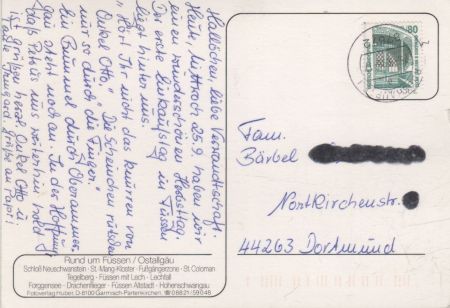 Hallöchen, liebe Verwandtschaft.
Heute, Mittwoch 25.9. haben wir
einen wunderschönen Herbsttag.
Der erste Einkaufstag in Füssen
liegt hinter uns.
"Hört Ihr nicht das knurren von
Onkel Otto," "Die Scheinchen rutschen
mir so durch die Finger."
Ein Bummel durch Oberammer-
gau steht noch an. In der Hoffnung
daß Petrus uns weiterhin hold
ist grüßen herzl. Onkel Otto u.
Tante Irmgard. Grüße an Papi!
Rund um Füssen / Ostallgäu
Schloß Neuschwanstein - St.-Mang-Kloster - Fußgängerzone - St. Coloman
Tegelberg - Füssen mit Lech - Lechfall
Forggensee - Drachenflieger - Füssen Altstadt - Hohenschwangau
Fotoverlag Huber, D-8100 Garmisch-Partenkirchen, ☎ 08821/59048
80
Fam.
Bärbel
Nortkirchenstr.
44263 Dortmund